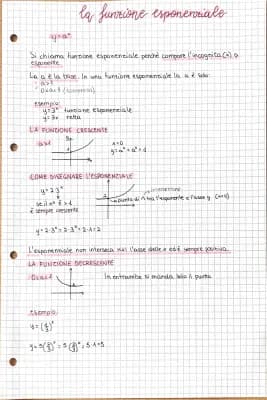 la funzione esponenziale
y=aˣ
Si chiama funzione esponenziale perché compare l'incognita (x) a
esponente.
La a è la base. In una funzione esponenziale la a è solo:
a>1
0<a<1
esempio:
y=3ˣ funzione esponenziale
y=3x retta
LA FUNZIONE CRESCENTE
a>1
x=0
y=aˣ=a⁰=1
COME DISEGNARE L'ESPONENZIALE
y=2·3ˣ
se il n° è >1
è sempre crescente
intersezione
punto di
tra l'esponente e l'asse y (x=0)
y=2·3ˣ=2·3⁰=2·1=2
L'esponenziale non interseca mai l'asse delle x ed è sempre positiva.
LA FUNZIONE DECRESCENTE
0<a<1
In entrambe si manda solo il punto.
Esempio: